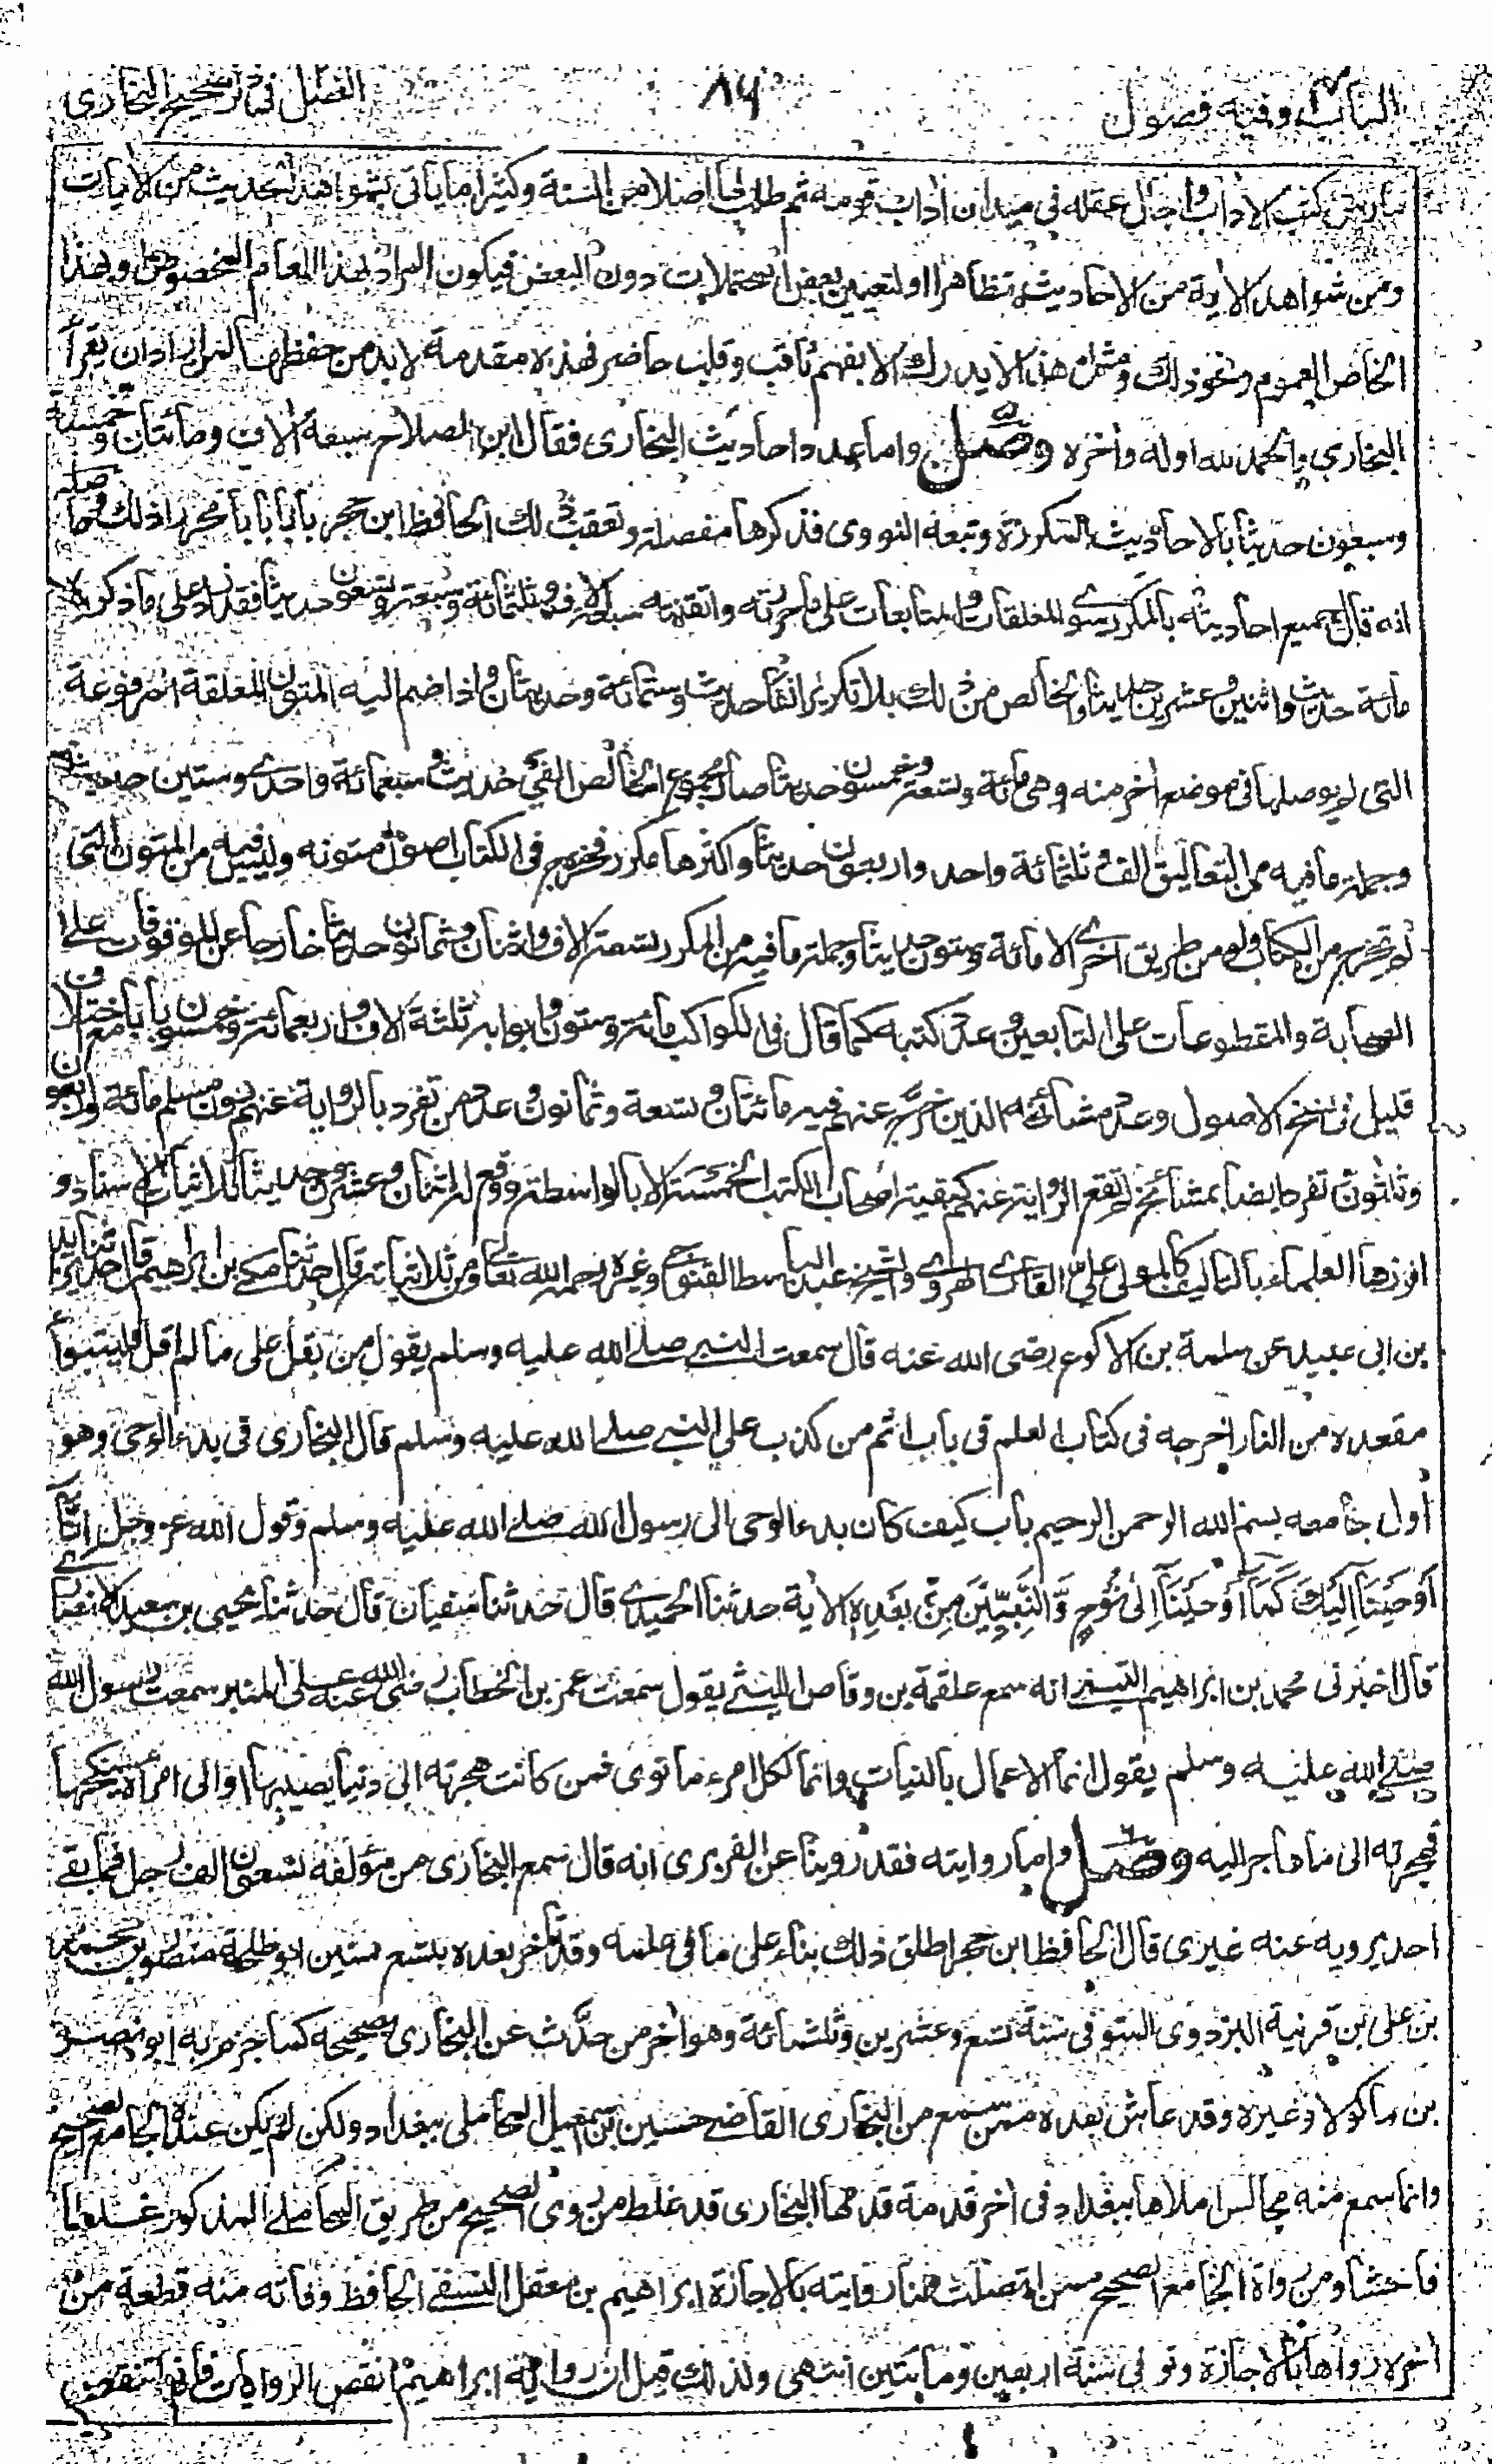 الباب ٣ وفيه فصول
٨٤
الفصل في ذكر صحيح البخاري
كتب الاداب واجال عقله في ميدان اداب قومه ثم طلب لها اصلا من السنة وكثيرا ما ياتي بشواهد الحديث من الايات
ومن شواهد الاية من الاحاديث تظاهرا او لتعيين بعض المحتملات دون البعض فيكون المراد بهذا العام الخصوص وبهذا
الخاص العموم ونحو ذلك ومثل هذا لا يدرك الا بفهم ثاقب وقلب حاضر فهذه مقدمة لابد من حفظها لمن اراد ان يقرأ
البخاري والحمد لله اوله واخره وصل واما عدد احاديث البخاري فقال ابن الصلاح سبعة الاف ومائتان وخمسة
وسبعون حديثا بالاحاديث المكررة وتبعه النووي فذكرها مفصلة وتعقب ذلك الحافظ ابن حجر بابا بابا محررا ذلك وحاصله
انه قال جميع احاديثه بالمكرر سوى المعلقات والمتابعات على ما حررته واتقنته سبعة الاف وثلثمائة وسبعة وتسعون حديثا فقد زاد على ما ذكروه
مائة حديث واثنين وعشرين حديثا والخالص من ذلك بلا تكرير الفا حديث وستمائة وحديثان واذا ضم اليه المتون المعلقة المرفوعة
التي لم يوصلها في موضع اخر منه وهي مائة وتسعة وخمسون حديثا صار مجموع الخالص الفي حديث وسبعمائة واحدى وستين حديثا
وجملة ما فيه من التعاليق الف وثلثمائة واحد واربعون حديثا واكثرها مكرر مخرج في الكتاب اصول متونه وليس فيه من المتون التي
لم تخرج من الكتاب ولو من طريق اخرى الا مائة وستون حديثا وجملة ما فيه من المكرر تسعة الاف واثنان وثمانون حديثا خارجا عن الموقوفات على
الصحابة والمقطوعات على التابعين وعدد كتبه كما قال في الكواكب مائة وستون وابوابه ثلثة الاف واربعمائة وخمسون بابا مع اختلاف
قليل في نسخ الاصول وعدد مشائخه الذين خرج عنهم فيه مائتان وتسعة وثمانون وعدد من تفرد بالرواية عنهم دون مسلم مائة واربعون
وثلثون وتفرد ايضا بمشائخ لم تقع الرواية عنهم كبقية اصحاب الكتب الخمسة الا بالواسطة ووقع له اثنان وعشرون حديثا ثلاثيات الاسناد و
افردها العلماء بالتاليف كالمولى علي القاري الهروي والشيخ عبد الباسط القنوجي وغيره رحمه الله تعالى ومن ثلاثياته قال حدثنا مكي بن ابراهيم قال حدثنا يزيد
بن ابي عبيد عن سلمة بن الاكوع رضى الله عنه قال سمعت النبي صلے الله عليه وسلم يقول من يقل على ما لم اقل فليتبوأ
مقعده من النار اخرجه في كتاب العلم في باب اثم من كذب على النبي صلے الله عليه وسلم قال البخاري في بدء الوحي وهو
اول جامعه بسم الله الرحمن الرحيم باب كيف كان بدء الوحى الى رسول الله صلے الله عليه وسلم وقول الله عز وجل انا
اَوْحَيْنَا اِلَيْكَ كَمَا اَوْحَيْنَا اِلى نُوْحٍ وَّالنَّبِيِّيْنَ مِنْ بَعْدِهِ الاية حدثنا الحميدى قال حدثنا سفيان قال حدثنا يحيى بن سعيد الانصارى
قال اخبرنى محمد بن ابراهيم التيمي انه سمع علقمة بن وقاص الليثي يقول سمعت عمر بن الخطاب رضى الله عنه على المنبر سمعت رسول الله
صلے الله عليه وسلم يقول انما الاعمال بالنيات وانما لكل امرء ما نوى فمن كانت هجرته الى دنيا يصيبها او الى امرأة ينكحها
فهجرته الى ما هاجر اليه وصل واما روايته فقد روينا عن الفربرى انه قال سمع البخارى من مؤلفه تسعون الف رجل فما بقى
احد يرويه عنه غيرى قال الحافظ ابن حجر اطلق ذلك بناء على ما في علمه وقد تأخر بعده بتسع سنين ابو طلحة منصور بن محمد
بن على بن قرينة البزدوى المتوفى سنة تسع وعشرين وثلثمائة وهو اخر من حدث عن البخارى بصحيحه كما جزم به ابو نصر
بن ماكولا وغيره وقد عاش بعده ممن سمع من البخارى القاضى حسين بن اسمعيل المحاملى ببغداد ولكن لم يكن عنده الجامع الصحيح
وانما سمع منه مجالس املاها ببغداد في اخر قدمة قدمها البخارى قد غلط من روى الصحيح من طريق المحاملى المذكور غلطا
فاحشا ومن رواة الجامع الصحيح ممن اتصلت لنا روايته بالاجازة ابراهيم بن معقل النسفى الحافظ وفاته منه قطعة من
اخره رواها بالاجازة وتوفى سنة اربعين ومايتين انتهى ولذلك قيل ان رواية ابراهيم انقص الروايات فانها تنقص